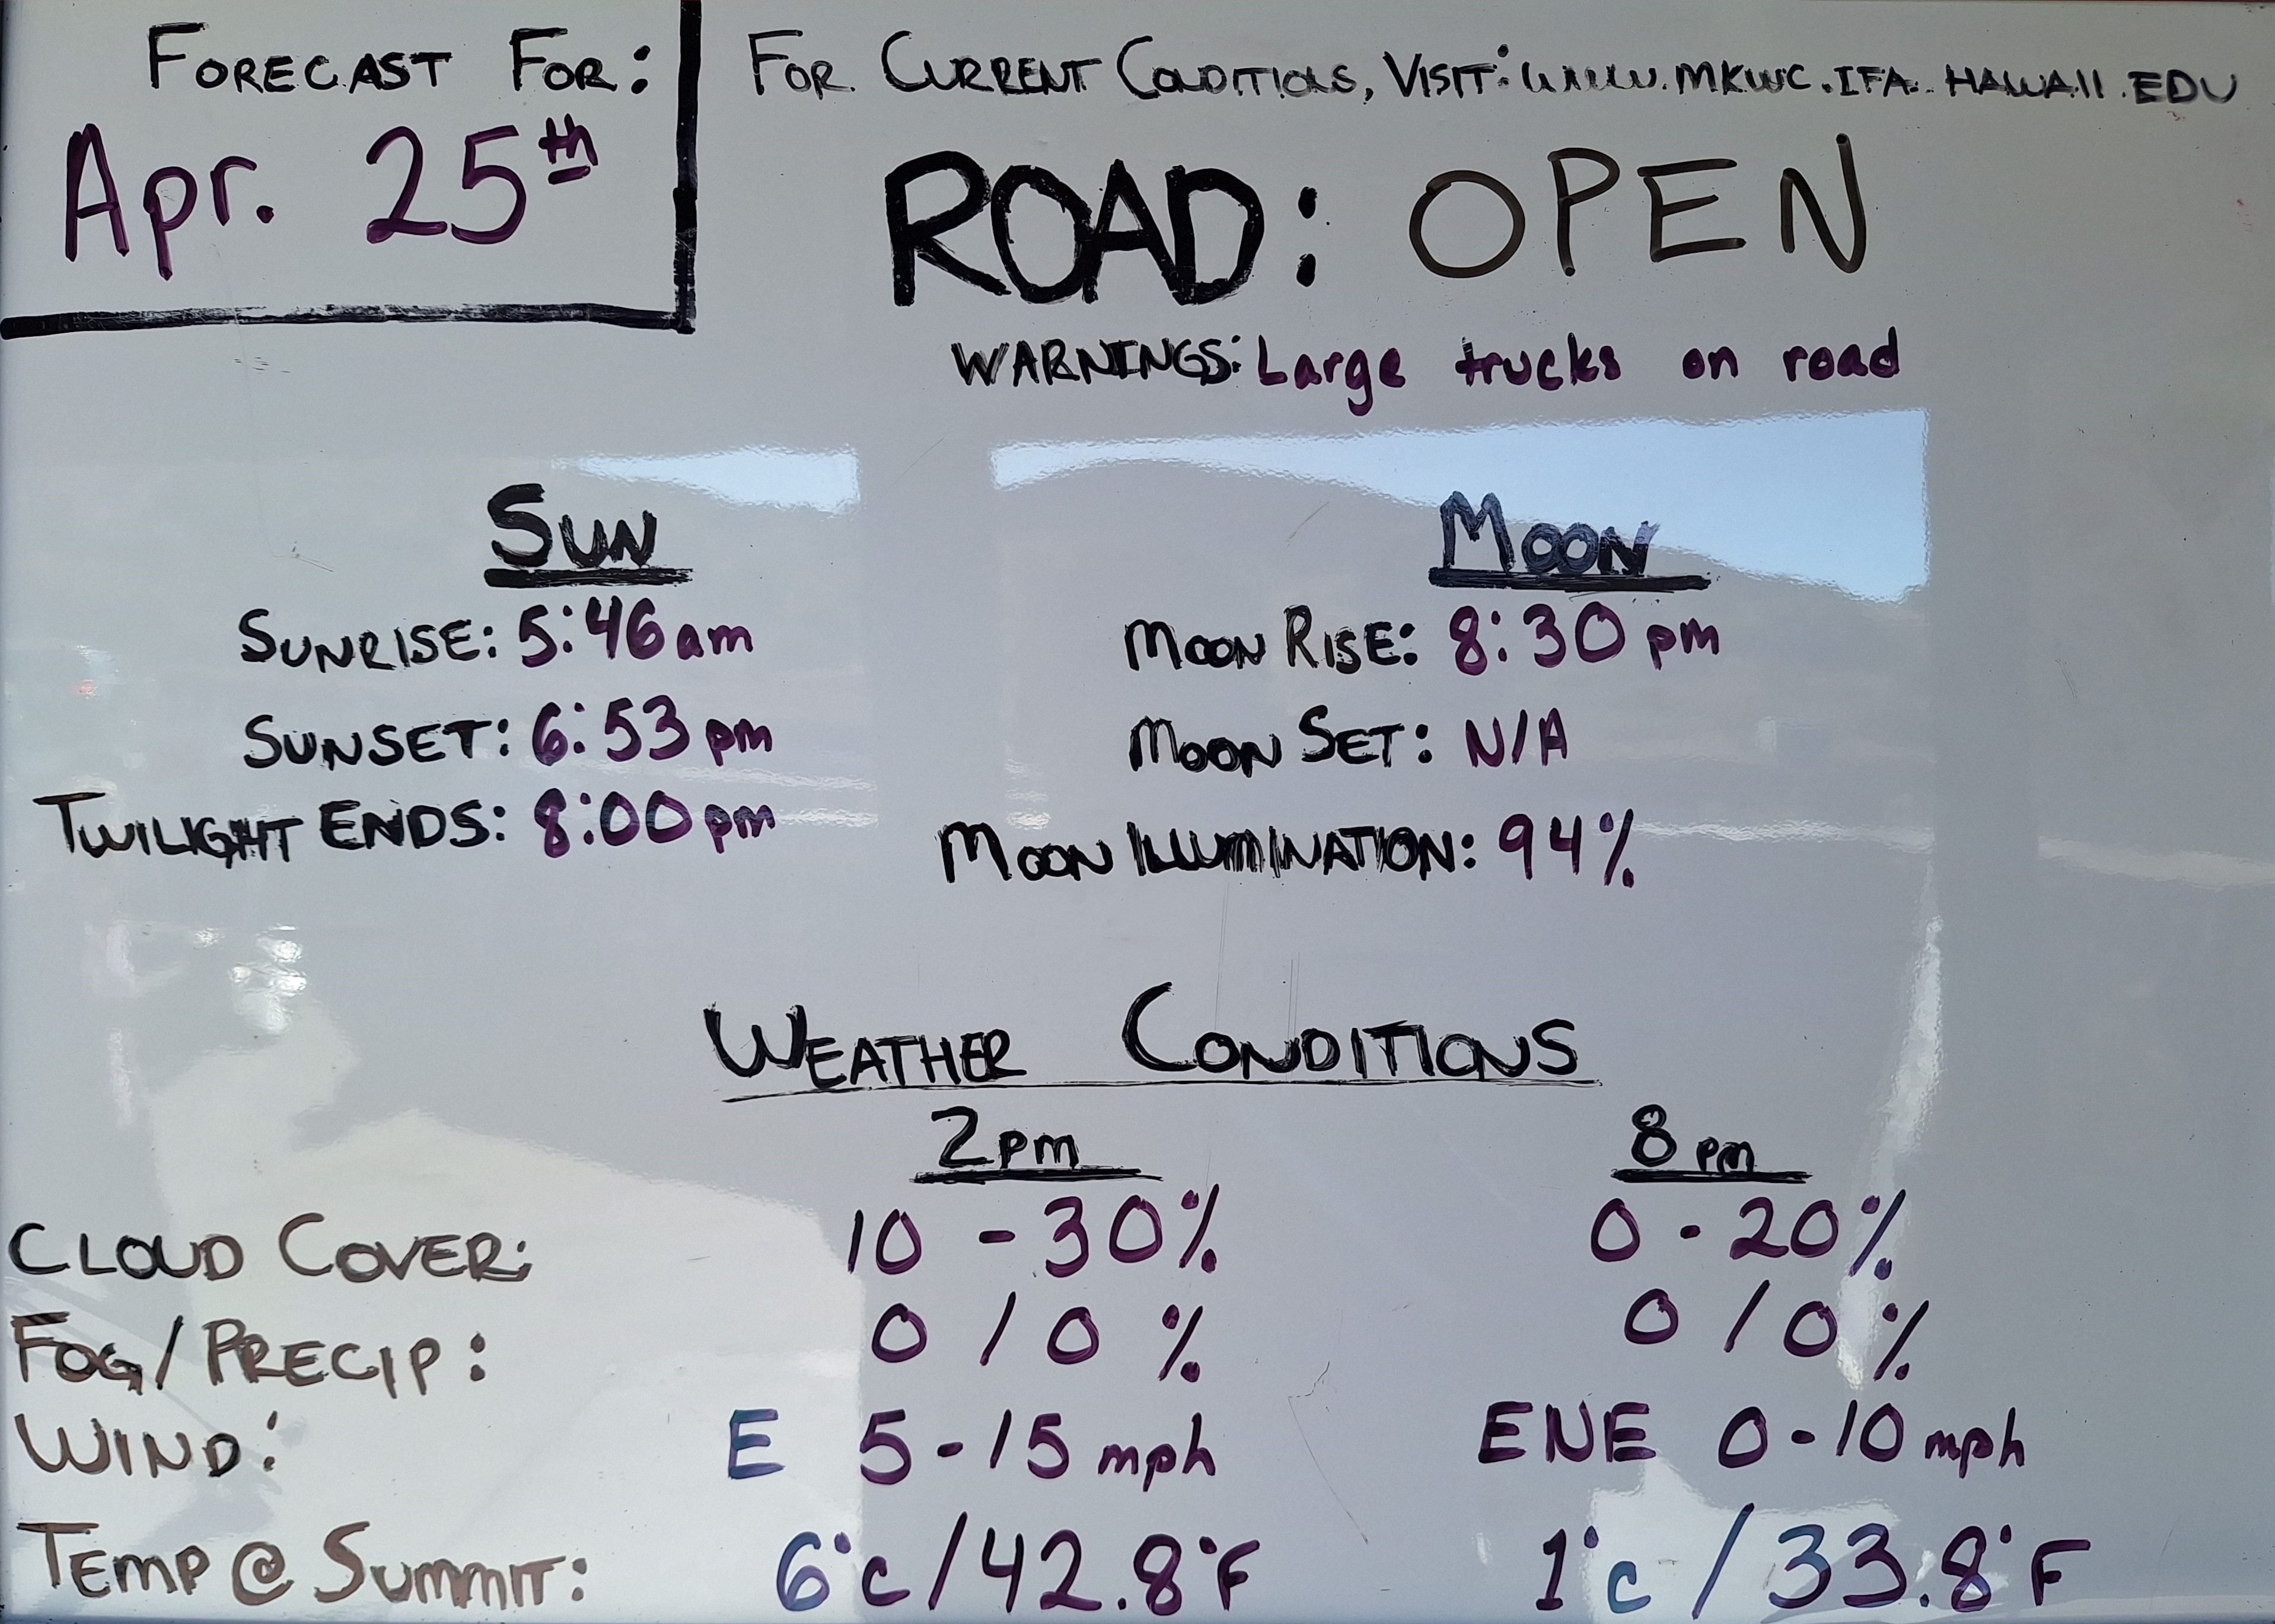 FORECAST FOR:
Apr. 25th
FOR CURRENT CONDITIONS, VISIT: WWW.MKWC.IFA.HAWAII.EDU
ROAD: OPEN
WARNINGS: Large trucks on road
SUN
SUNRISE: 5:46 am
SUNSET: 6:53 pm
TWILIGHT ENDS: 8:00 pm
MOON
MOON RISE: 8:30 pm
MOON SET: N/A
MOON ILLUMINATION: 94%
WEATHER CONDITIONS
2pm 8pm
CLOUD COVER: 10 - 30% 0 - 20%
FOG/PRECIP: 0 / 0 % 0 / 0 %
WIND: E 5-15 mph ENE 0-10 mph
TEMP @ SUMMIT: 6°C/42.8°F 1°C/33.8°F